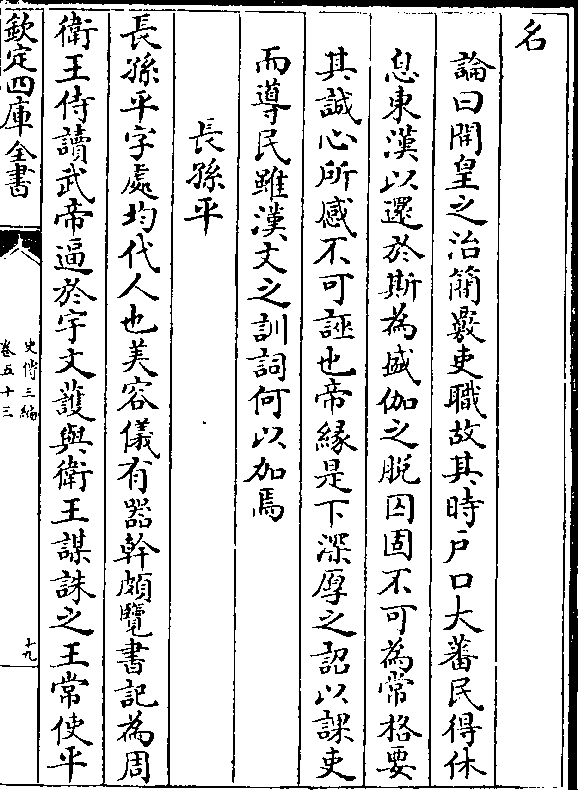 名
論曰開皇之治簡覈吏職故其時戶口大蕃民得休
息東漢以還於斯為盛伽之脫囚固不可為常格要
其誠心所感不可誣也帝緣是下深厚之詔以課吏
而導民雖漢文之訓詞何以加焉
長孫平
長孫平字處均代人也美容儀有器幹頗覽書記為周
衛王侍讀武帝逼於宇文護與衛王謀誅之王常使平
欽定四庫全書
史傳三編
卷五十三
十九